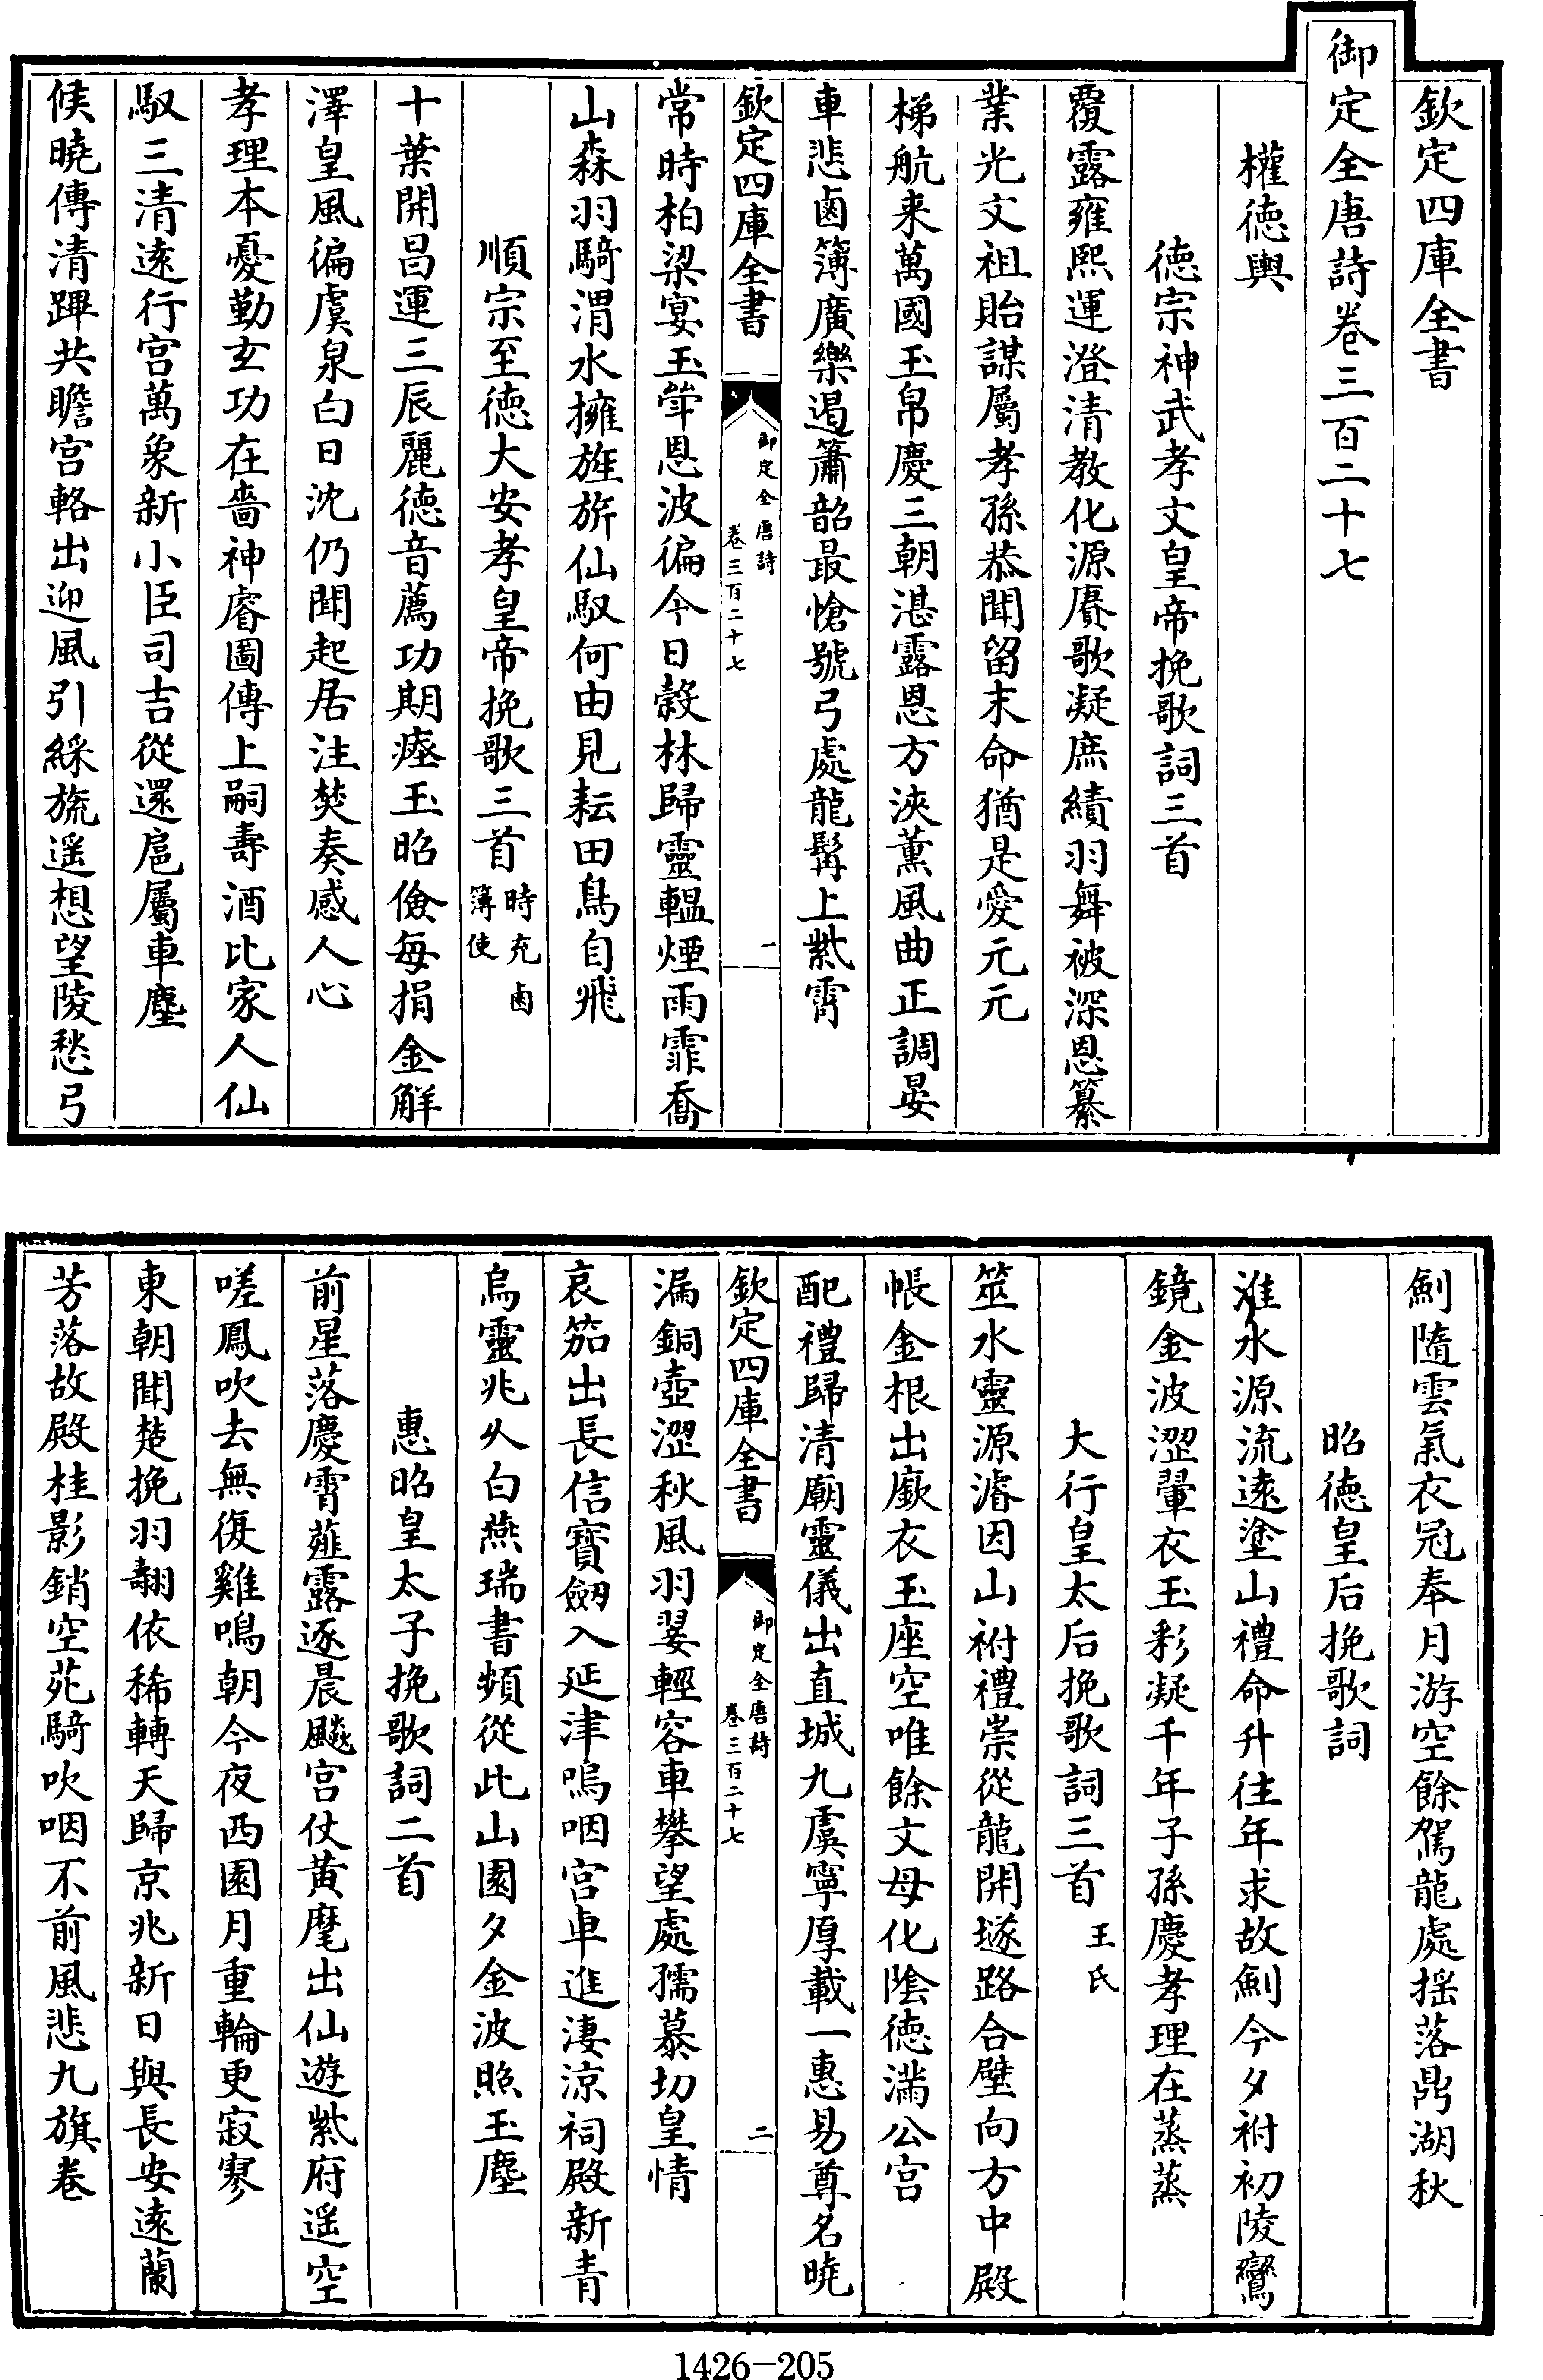 欽定四庫全書
御定全唐詩卷三百二十七
權德輿
德宗神武孝文皇帝挽歌詞三首
覆露雍熙運澄清教化源賡歌凝庶績羽舞被深恩纂
業光文祖貽謀屬孝孫恭聞留末命猶是愛元元
梯航来萬國玉帛慶三朝湛露恩方浹薫風曲正調晏
車悲鹵簿廣樂遏簫韶最愴號弓處龍髯上紫霄
欽定四庫全書
御定全唐詩
卷三百二十七
一
常時柏梁宴玉斝恩波徧今日穀林歸靈轀煙雨霏喬
山森羽騎渭水擁旌旂仙馭何由見耘田鳥自飛
順宗至徳大安孝皇帝挽歌三首時充鹵簿使
十葉開昌運三辰麗徳音薦功期瘞玉昭儉每捐金解
澤皇風徧虞泉白日沈仍聞起居注焚奏感人心
孝理本憂勤玄功在嗇神睿圖傳上嗣壽酒比家人仙
馭三清遠行宫萬象新小臣司吉從還扈屬車塵
候曉傳清蹕共瞻宫輅出迎風引綵旒遥想望陵愁弓
劎隨雲氣衣冠奉月游空餘駕龍處揺落鼎湖秋
昭徳皇后挽歌詞
淮水源流遠塗山禮命升往年求故劎今夕祔初陵鸞
鏡金波澀翬衣玉彩凝千年子孫慶孝理在蒸蒸
大行皇太后挽歌詞三首王氏
筮水靈源濬因山祔禮崇從龍開𨻶路合璧向方中殿
帳金根出廞衣玉座空唯餘文母化陰徳滿公宫
配禮歸清廟靈儀出直城九虞寧厚載一惠易尊名曉
欽定四庫全書
御定全唐詩
卷三百二十七
二
漏銅壺澀秋風羽翣輕容車攀望處孺慕切皇情
哀笳出長信寳劒入延津嗚咽宫車進淒涼祠殿新青
烏靈兆乆白燕瑞書頻從此山園夕金波照玉塵
惠昭皇太子挽歌詞二首
前星落慶霄薤露逐晨飈宫仗黄麾出仙遊紫府遥空
嗟鳳吹去無復雞鳴朝今夜西園月重輪更寂寥
東朝聞楚挽羽翿依稀轉天歸京兆新日與長安遠蘭
芳落故殿桂影銷空苑騎吹咽不前風悲九旗卷
1426—205